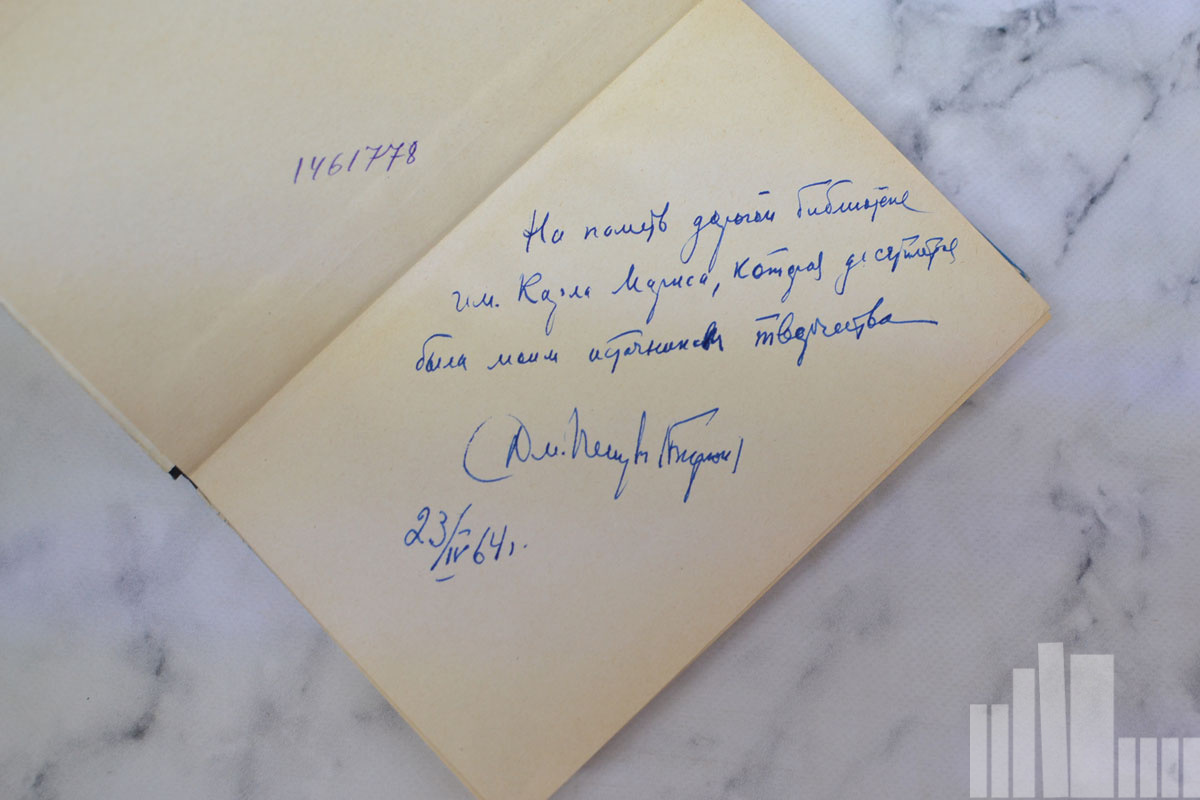 1461778
На память дорогой библиотеке
им. Карла Маркса, которая десятилетия
была моим источником творчества
23/IV 64 г.